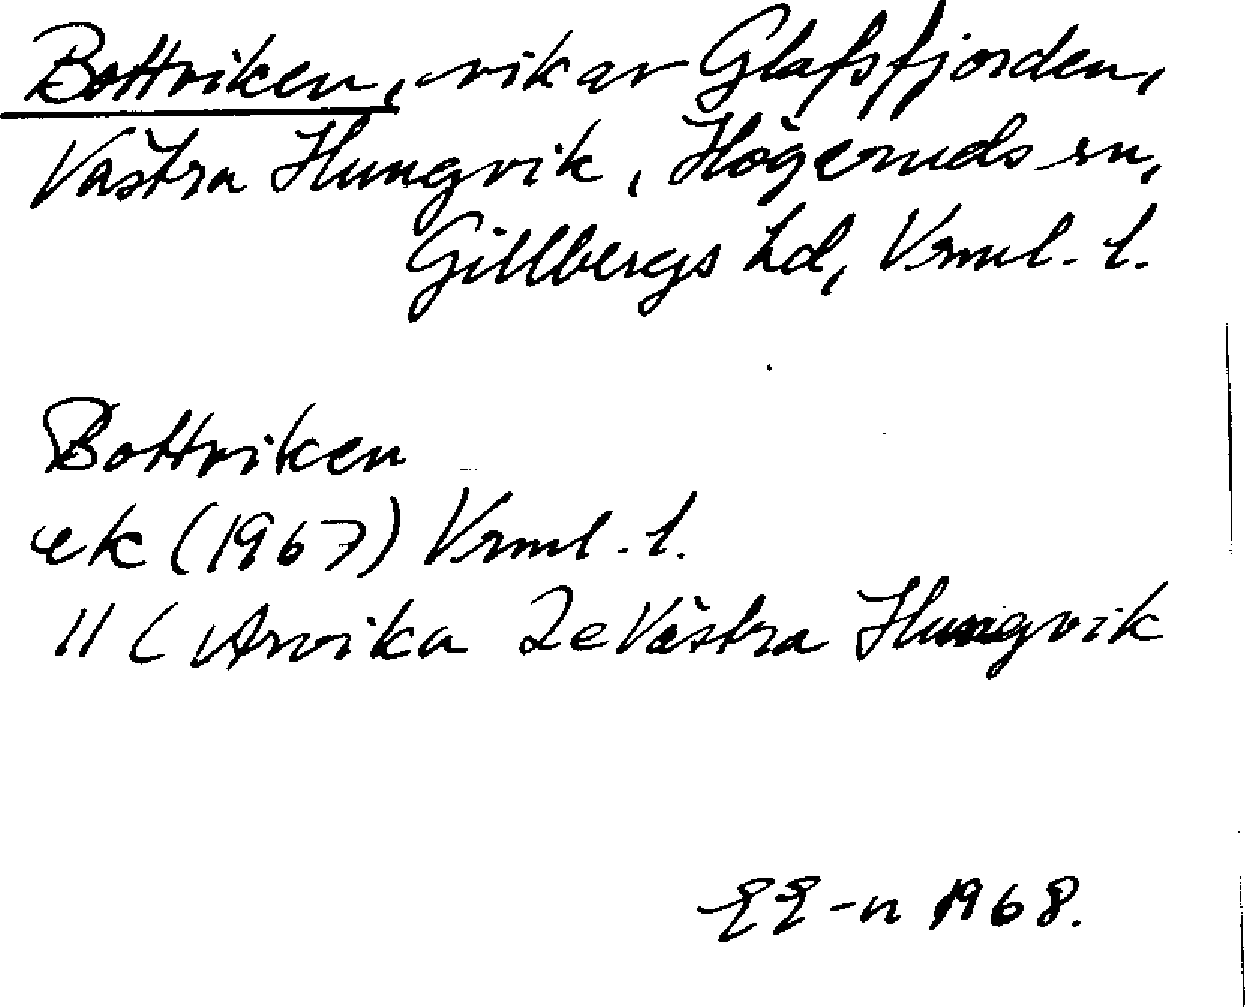 Bottviken, vik av Glafsfjorden,
Västra Hungvik, Högeruds sn,
Gillbergs hd, Vrml. l.
Bottviken
ek (1967) Vrml. l.
11 C Arvika 2e Västra Hungvik
-n 1968.